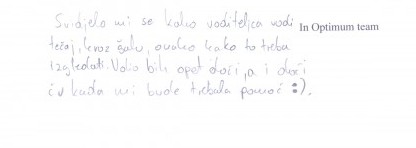 Svidjelo mi se kako voditeljica vodi
tečaj, kroz šalu, onako kako to treba
izgledati. Volio bih opet doći, a i doći
ću kada mi bude trebala pomoć :).
In Optimum team